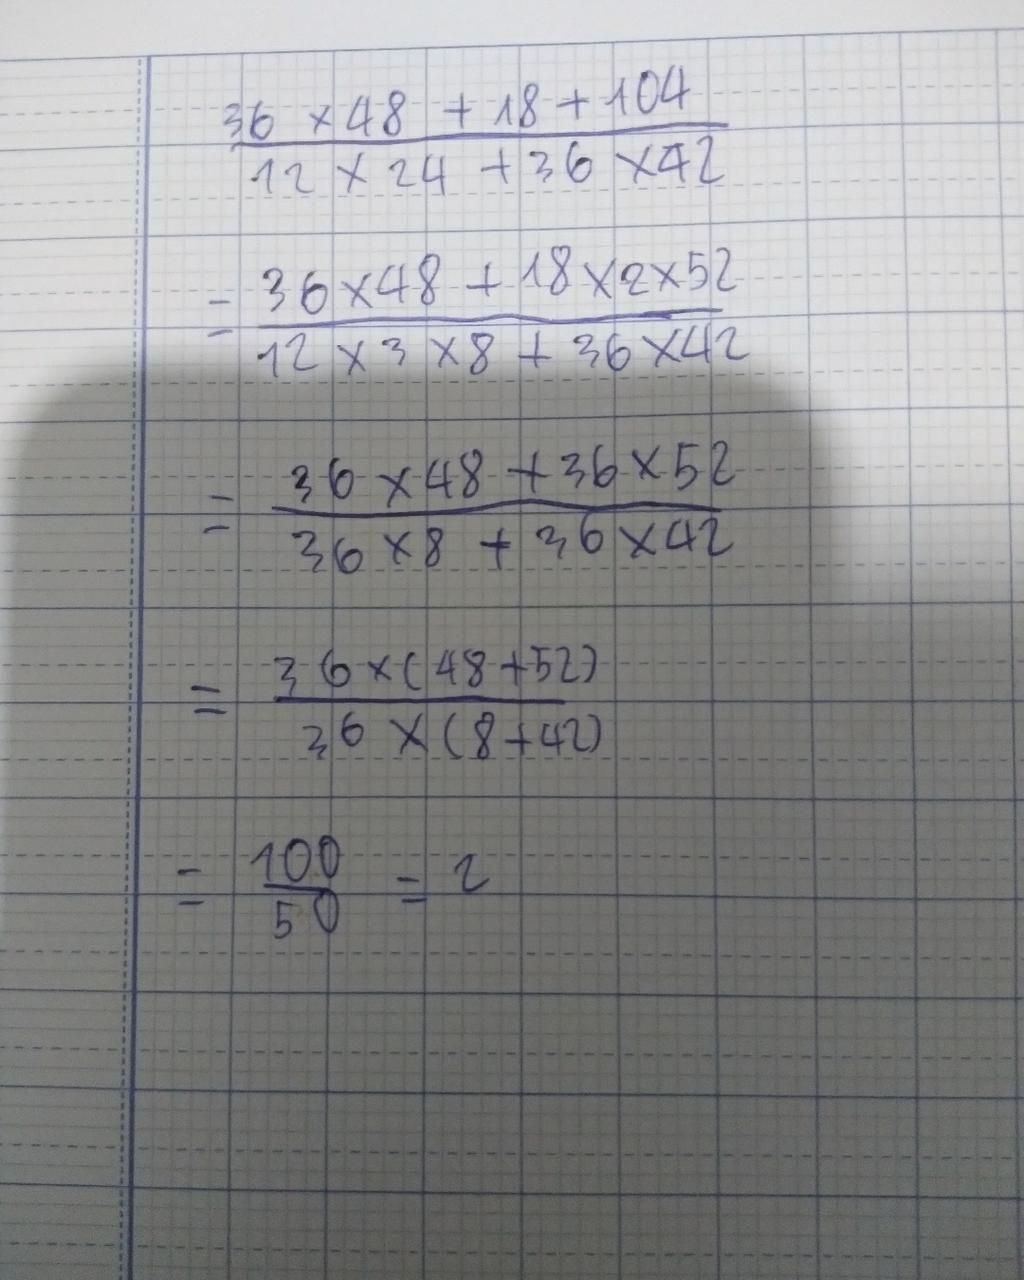 36 × 48 + 18 + 104
12 × 24 + 36 × 42
= 36 × 48 + 18 × 2 × 52
12 × 3 × 8 + 36 × 42
= 36 × 48 + 36 × 52
36 × 8 + 36 × 42
= 36 × (48 + 52)
36 × (8 + 42)
= 100 = 2
50